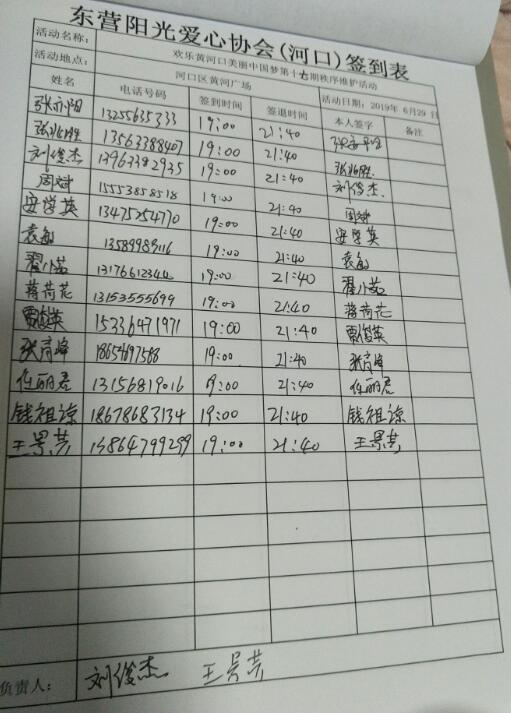 东营阳光爱心协会(河口)签到表
活动名称: 欢乐黄河口美丽中国梦第十七期秩序维护活动
活动地点: 河口区黄河广场 活动日期: 2019年 6月29日
姓名 电话号码 签到时间 签退时间 本人签字 备注
13255635333 19:00 21:40
张兆胜 13563388407 19:00 21:40 张兆胜
刘俊杰 13963392935 19:00 21:40 刘俊杰
周斌 15553858518 19:00 21:40 周斌
安学英 13475254770 19:00 21:40 安学英
袁敏 13589989116 19:00 21:40 袁敏
翟小茹 19:00 21:40 翟小茹
蒋荷花 13153555699 19:00 21:40 蒋荷花
贾俊英 15336471971 19:00 21:40 贾俊英
张育峰 18654697588 19:00 21:40 张育峰
任丽君 13156819016 19:00 21:40 任丽君
钱祖谅 18678683134 19:00 21:40 钱祖谅
王景芸 13864799299 19:00 21:40 王景芸
负责人: 刘俊杰 王景芸